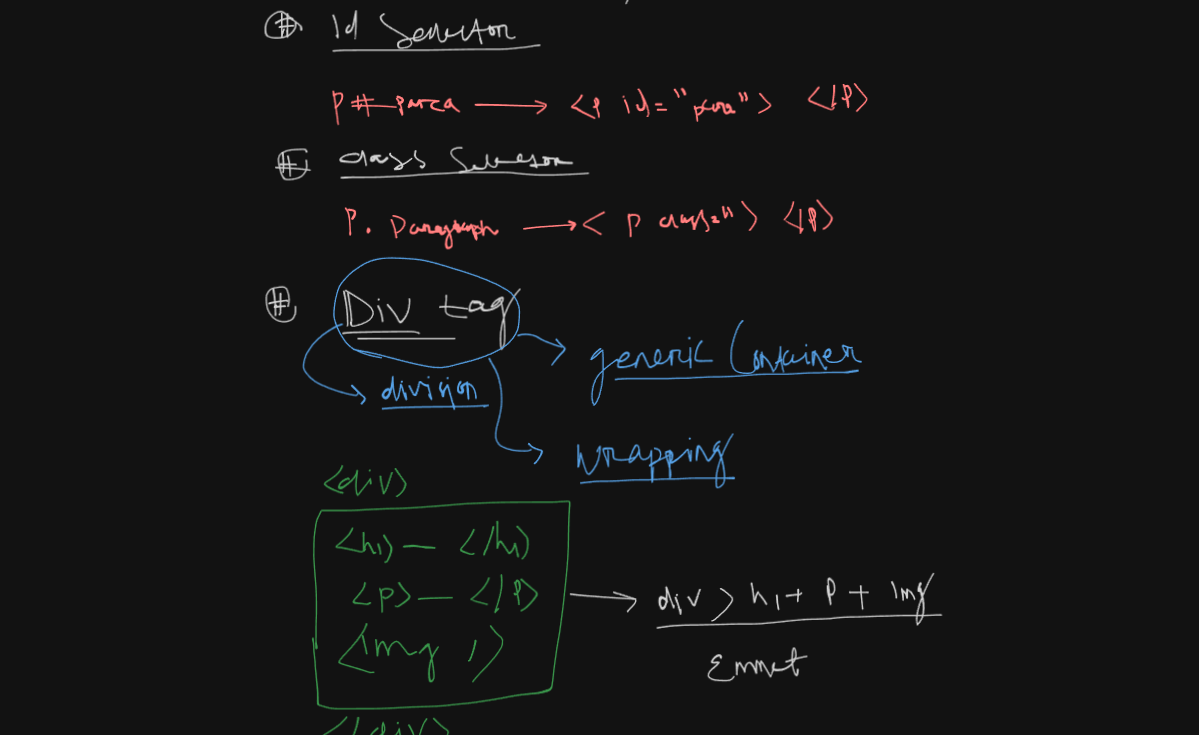 # Id Selector
p#para → <p id="para"> </p>
# class Selector
P. Paragraph → < p class=" "> </p>
# Div tag
generic Container
division
Wrapping
<div>
<h1> — </h1>
<p> — </p>
<img />
div > h1 + p + img
Emmet
</div>